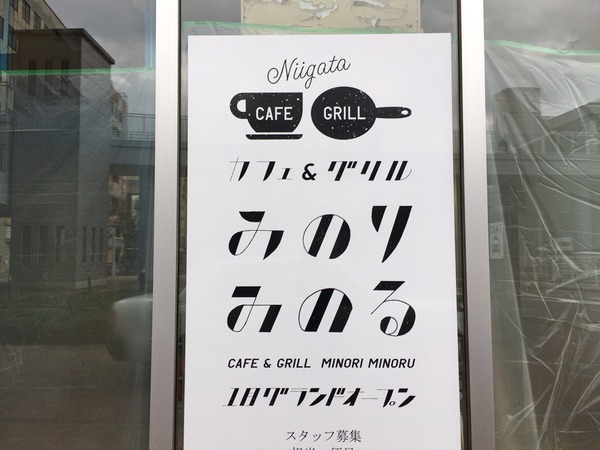 Niigata
CAFE GRILL
カフェ&グリル
みのり
みのる
CAFE & GRILL MINORI MINORU
1月グランドオープン
スタッフ募集